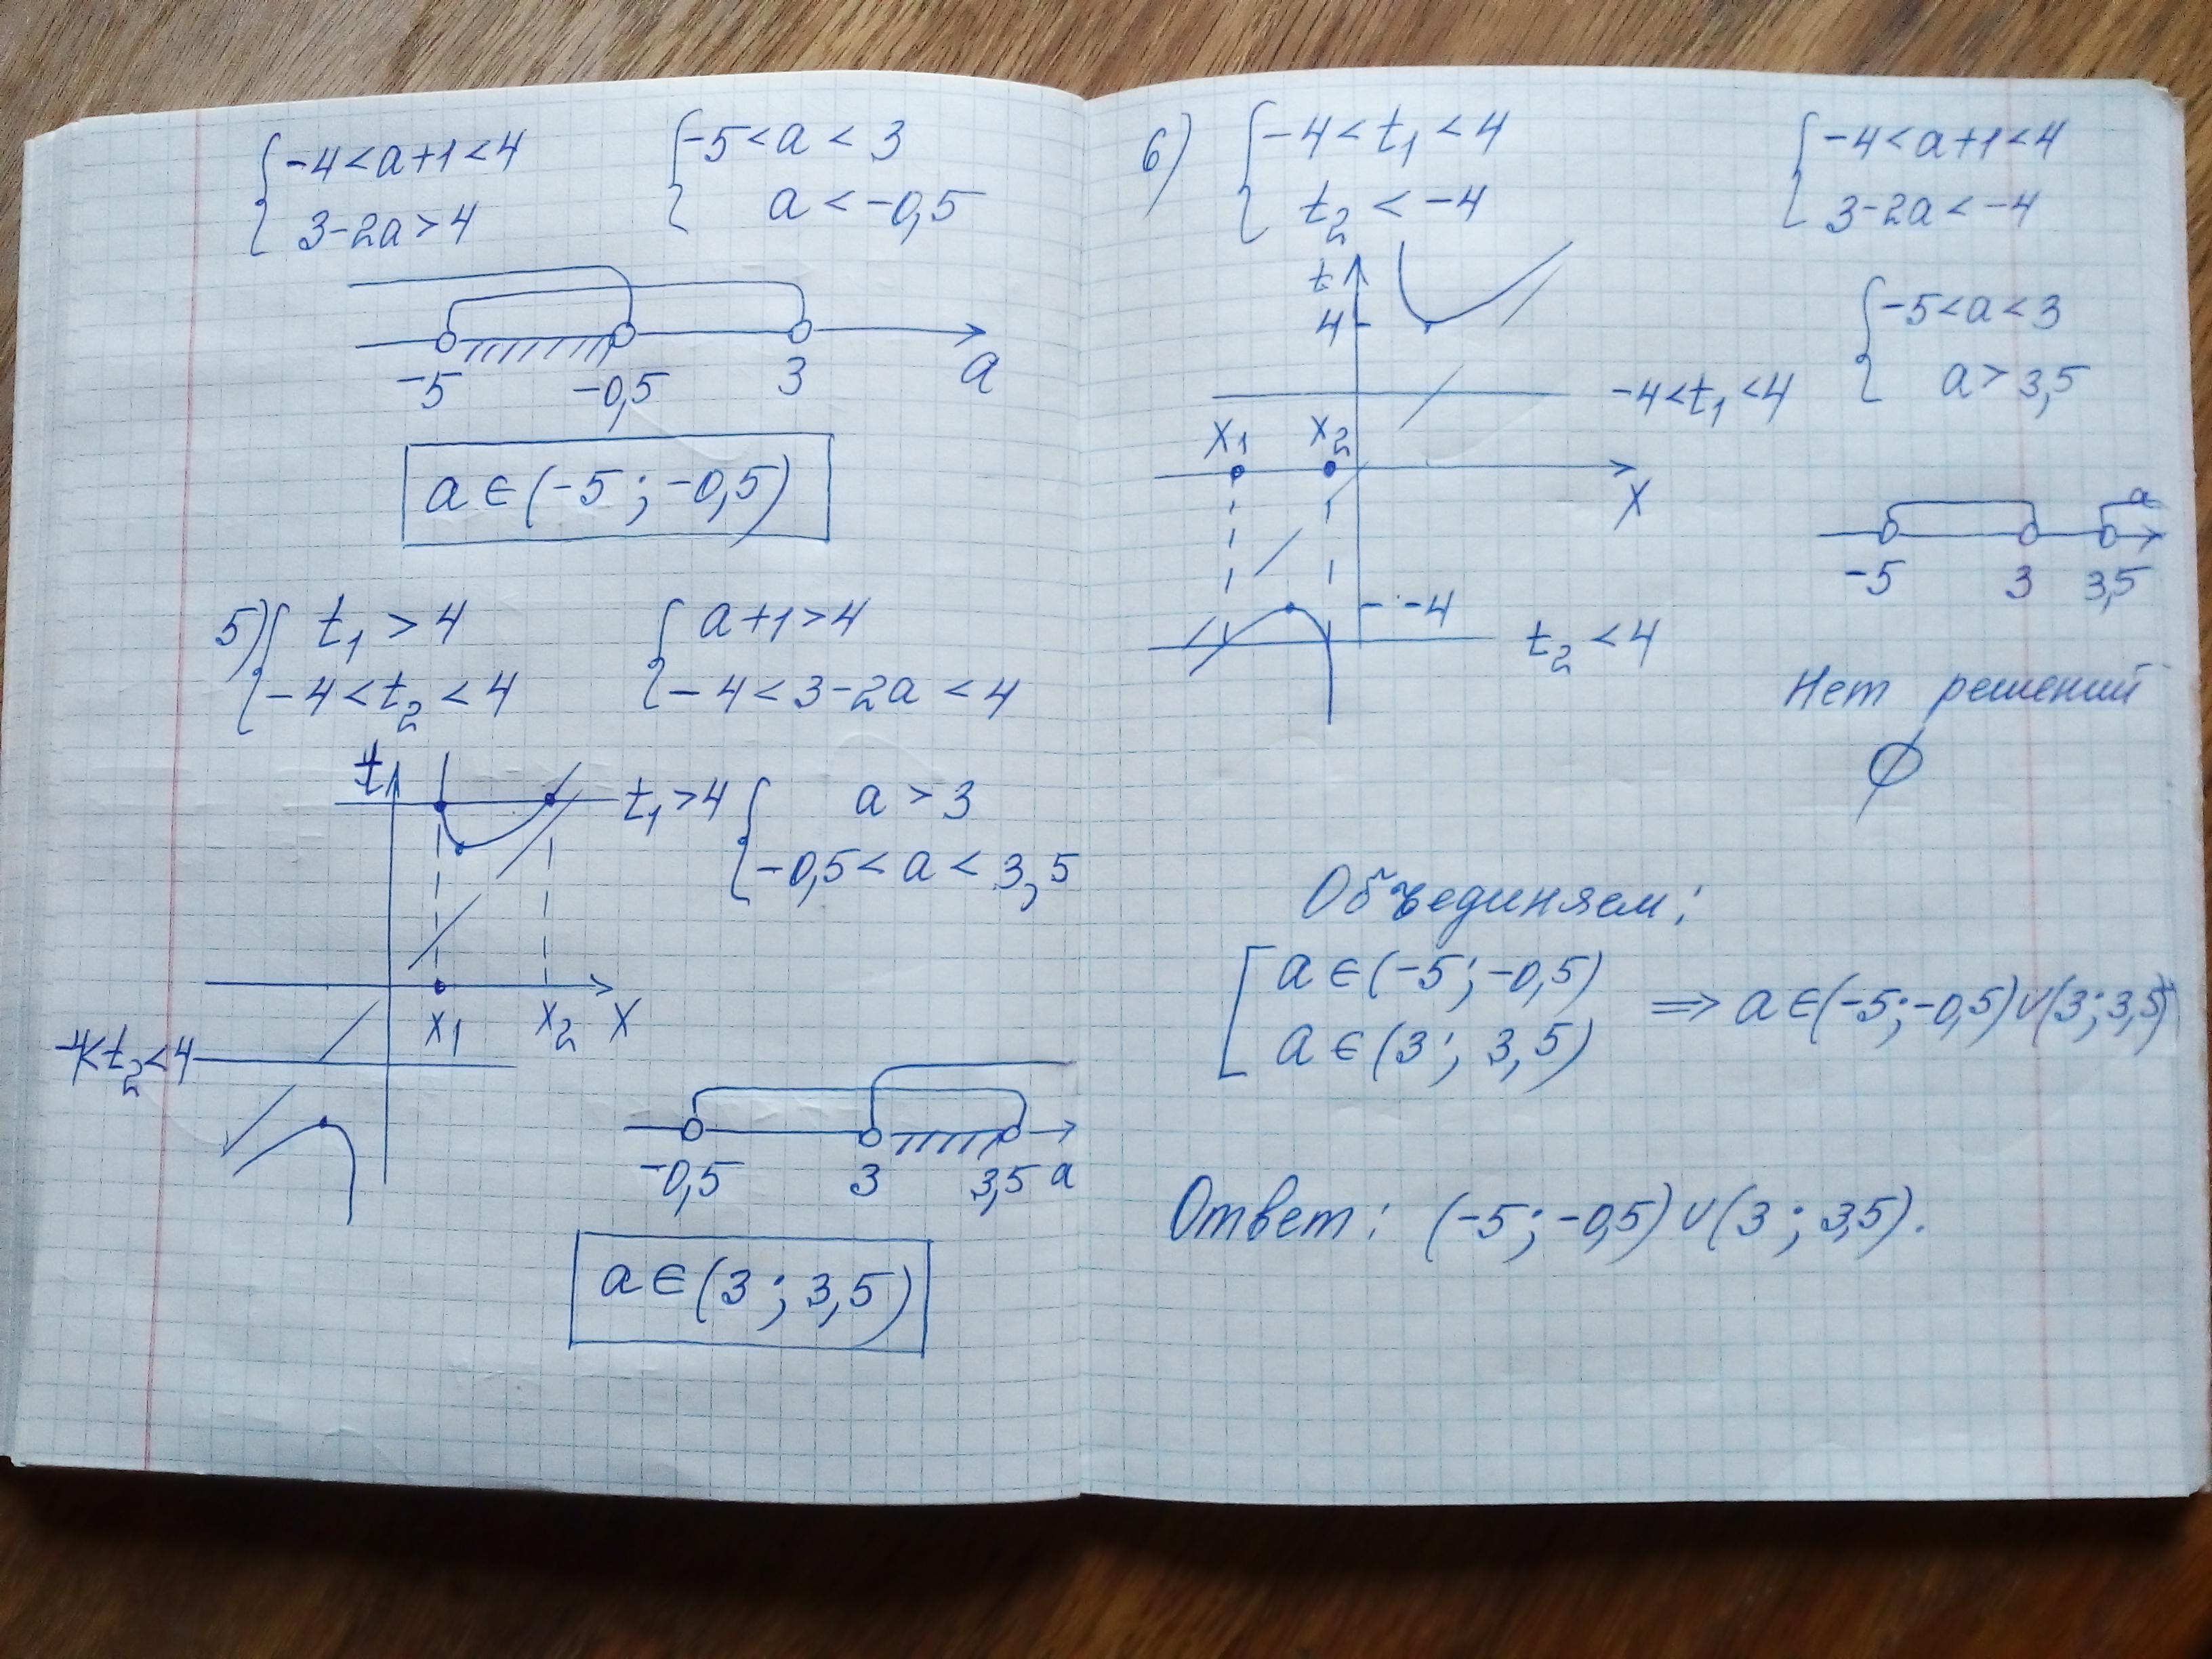 { -4 < a+1 < 4
3-2a > 4
{ -5 < a < 3
a < -0,5
-5 -0,5 3 a
a ∈ (-5 ; -0,5)
5) { t₁ > 4
-4 < t₂ < 4
{ a+1 > 4
-4 < 3-2a < 4
t
t₁ > 4
{ a > 3
-0,5 < a < 3,5
x₁ x₂ X
-4 < t₂ < 4
-0,5 3 3,5 a
a ∈ (3 ; 3,5)
6) { -4 < t₁ < 4
t₂ < -4
{ -4 < a+1 < 4
3-2a < -4
t
4
{ -5 < a < 3
a > 3,5
-4 < t₁ < 4
x₁ x₂
X
a
-5 3 3,5
-4
t₂ < 4
Нет решений
∅
Объединяем:
[ a ∈ (-5 ; -0,5)
a ∈ (3 ; 3,5)
⇒ a ∈ (-5; -0,5) ∪ (3; 3,5)
Ответ: (-5 ; -0,5) ∪ (3 ; 3,5).